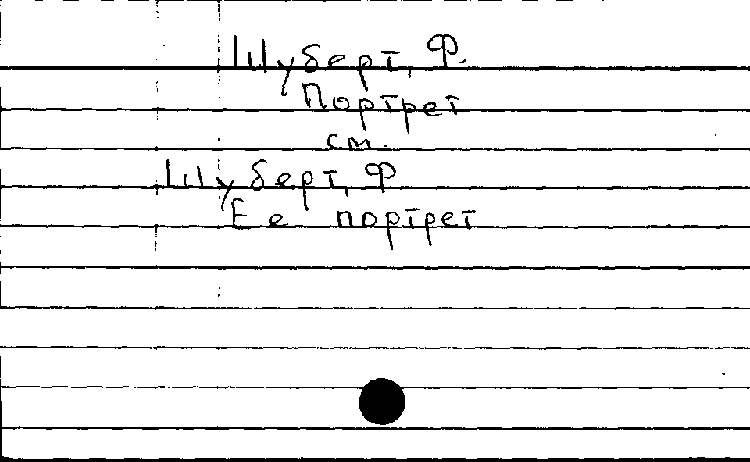 Шуберт, Ф.
Портрет
см.
Шуберт, Ф.
Ее портрет